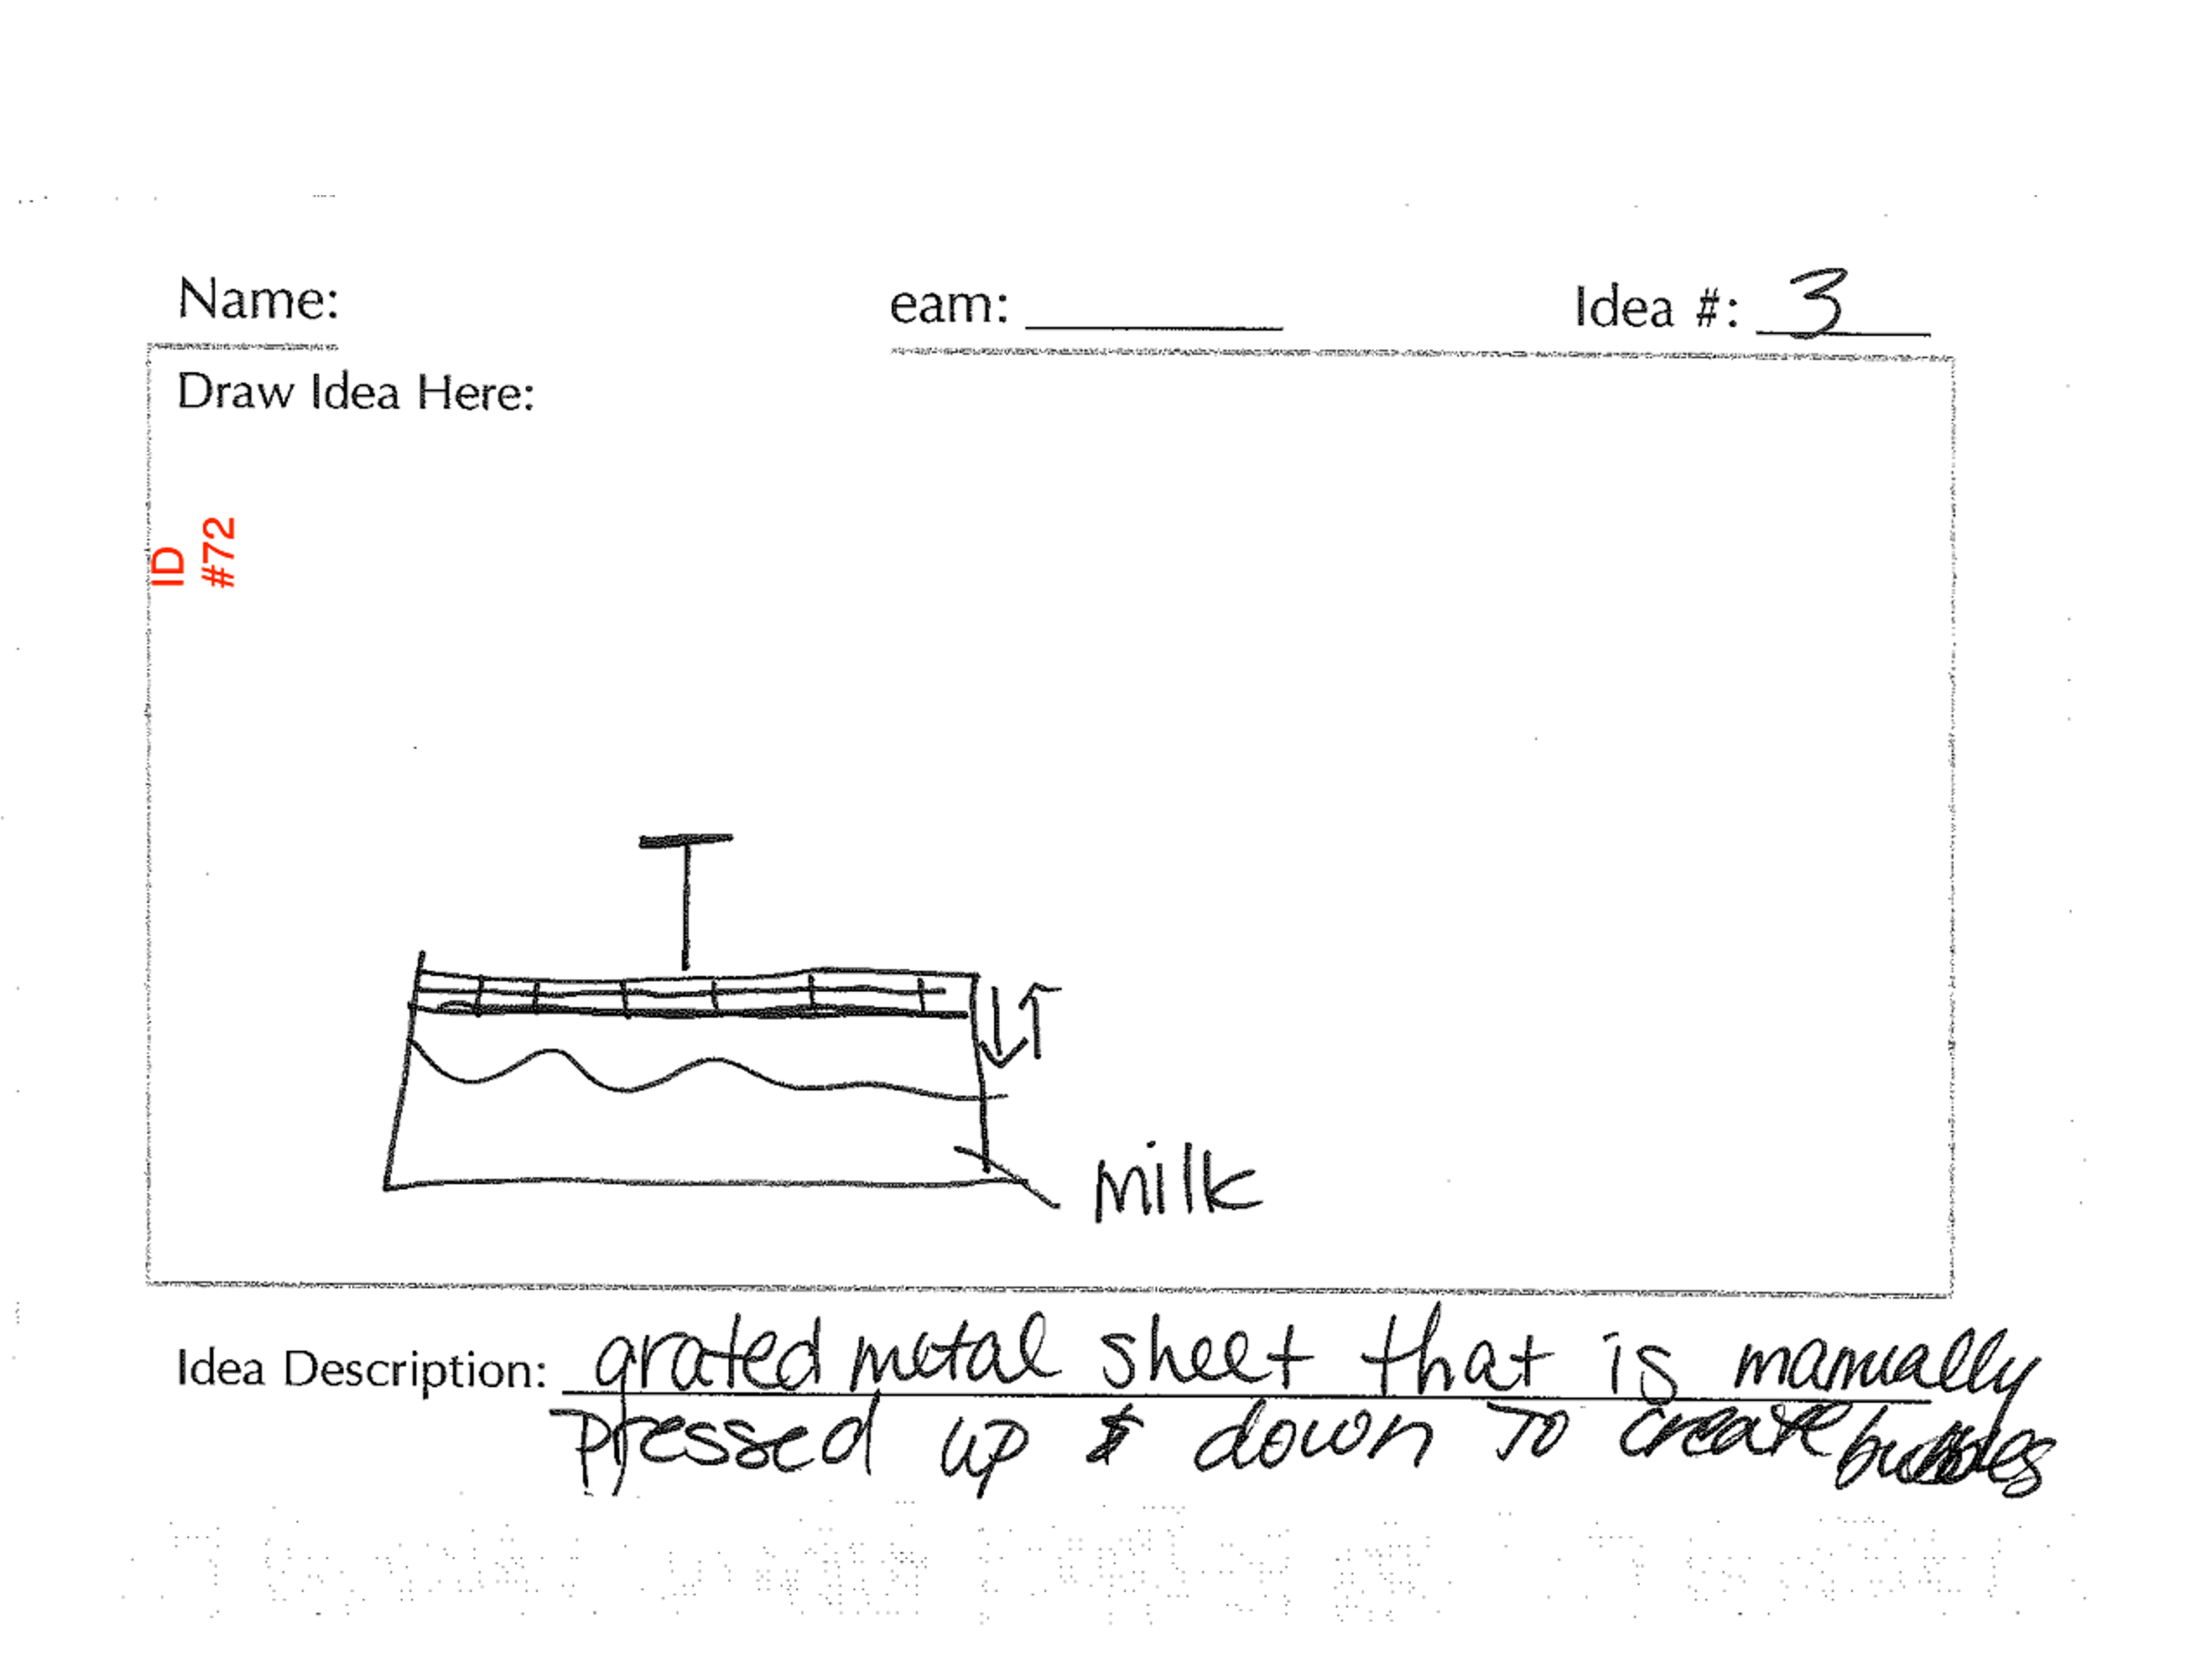 Name:
eam:
Idea #: 3
Draw Idea Here:
ID
#72
milk
Idea Description: grated metal sheet that is manually
pressed up & down to create bubbles